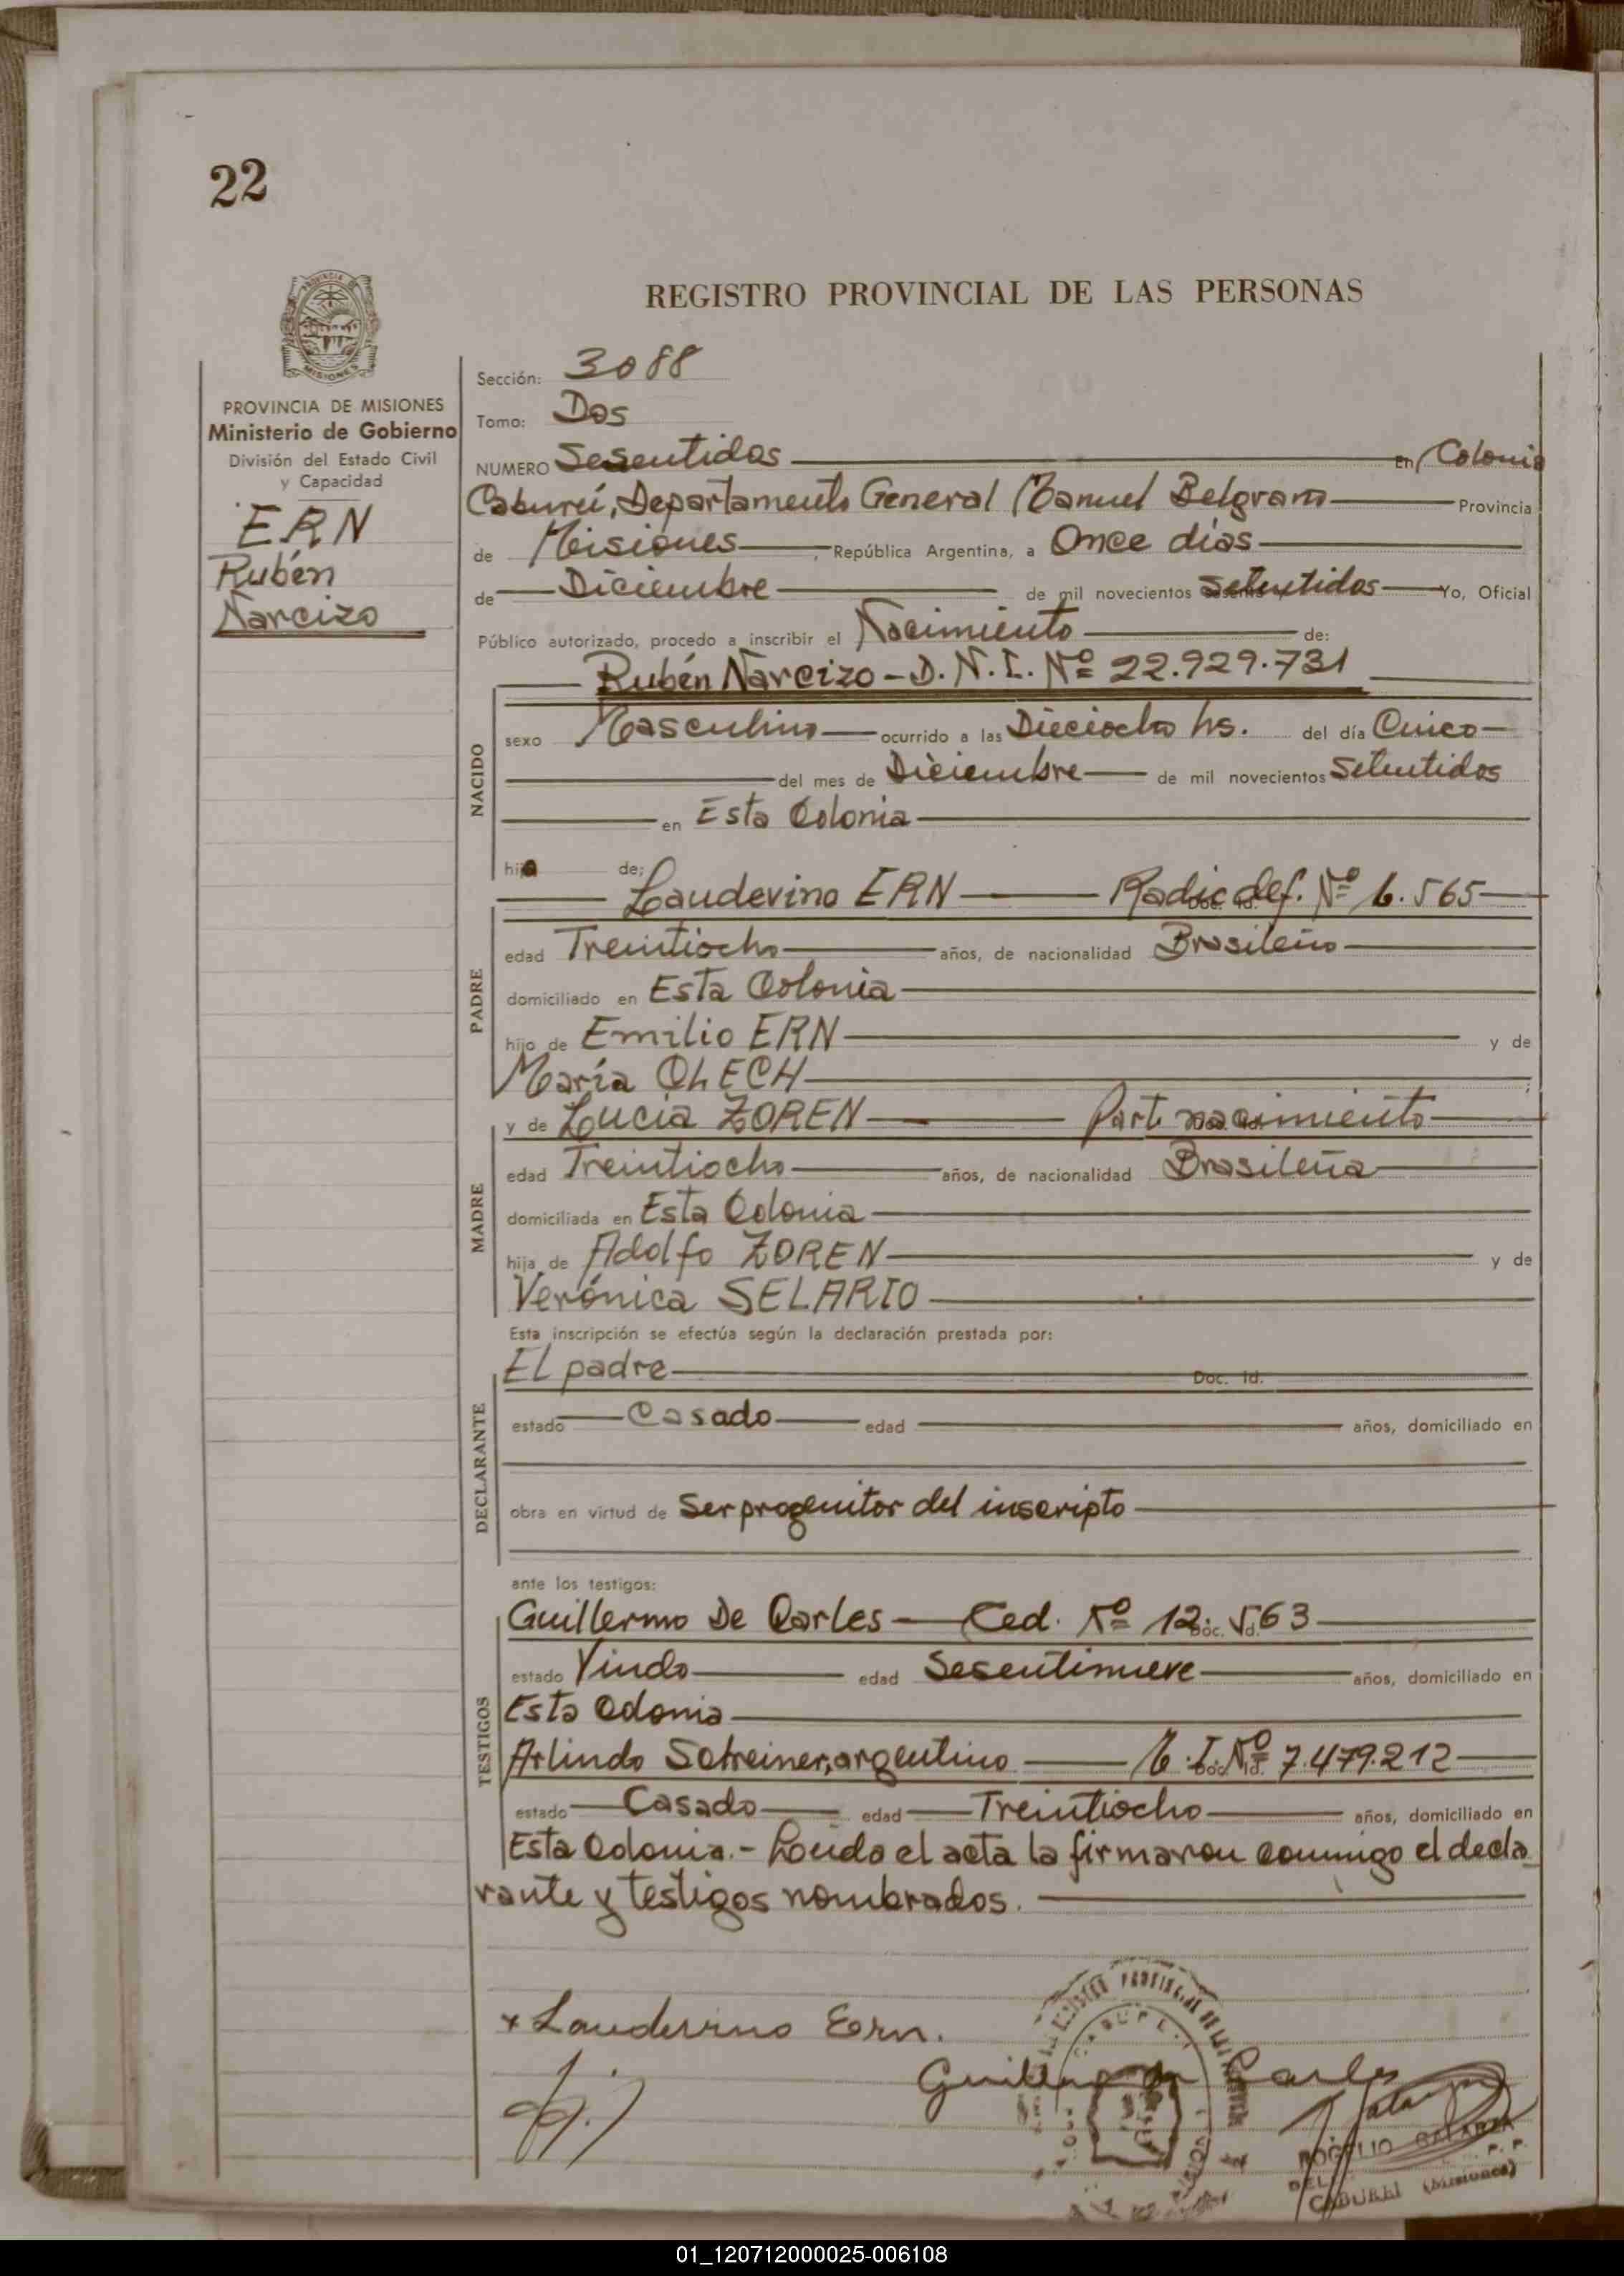 22
REGISTRO PROVINCIAL DE LAS PERSONAS
MISIONES
PROVINCIA DE MISIONES
Ministerio de Gobierno
División del Estado Civil
y Capacidad
ERN
Rubén
Narcizo
Sección: 3088
Tomo: Dos
NUMERO Sesentidos En Colonia
Caburei, Departamento General Manuel Belgrano Provincia
de Misiones, República Argentina, a Once días
de Diciembre de mil novecientos setentidos Yo, Oficial
Público autorizado, procedo a inscribir el Nacimiento de:
Rubén Narcizo - D.N.I. Nº 22.929.731
NACIDO
sexo Masculino ocurrido a las Dieciocho hs. del día Cinco
del mes de Diciembre de mil novecientos Setentidos
en Esta Colonia
hijo de:
Laudevino ERN Radic def. Nº 6.565
PADRE
edad Treintiocho años, de nacionalidad Brasileño
domiciliado en Esta Colonia
hijo de Emilio ERN y de
María OLECH
y de Lucía ZOREN Parti nacimiento
MADRE
edad Treintiocho años, de nacionalidad Brasileña
domiciliada en Esta Colonia
hija de Adolfo ZOREN y de
Verónica SELARIO
Esta inscripción se efectúa según la declaración prestada por:
El padre Doc. Id.
DECLARANTE
estado Casado edad años, domiciliado en
obra en virtud de Ser progenitor del inscripto
ante los testigos:
Guillermo De Carles Ced. Nº 12.563
TESTIGOS
estado Viudo edad Sesentinueve años, domiciliado en
Esta Colonia
Arlindo Schreiner, argentino M.I. Nº 7.479.212
estado Casado edad Treintiocho años, domiciliado en
Esta Colonia.- Leída el acta la firmaron conmigo el decla
rante y testigos nombrados.
x Lauderino Ern.
Guillermo de Carles
ROGELIO GALARZA
CABUREI (Misiones)
01_120712000025-006108